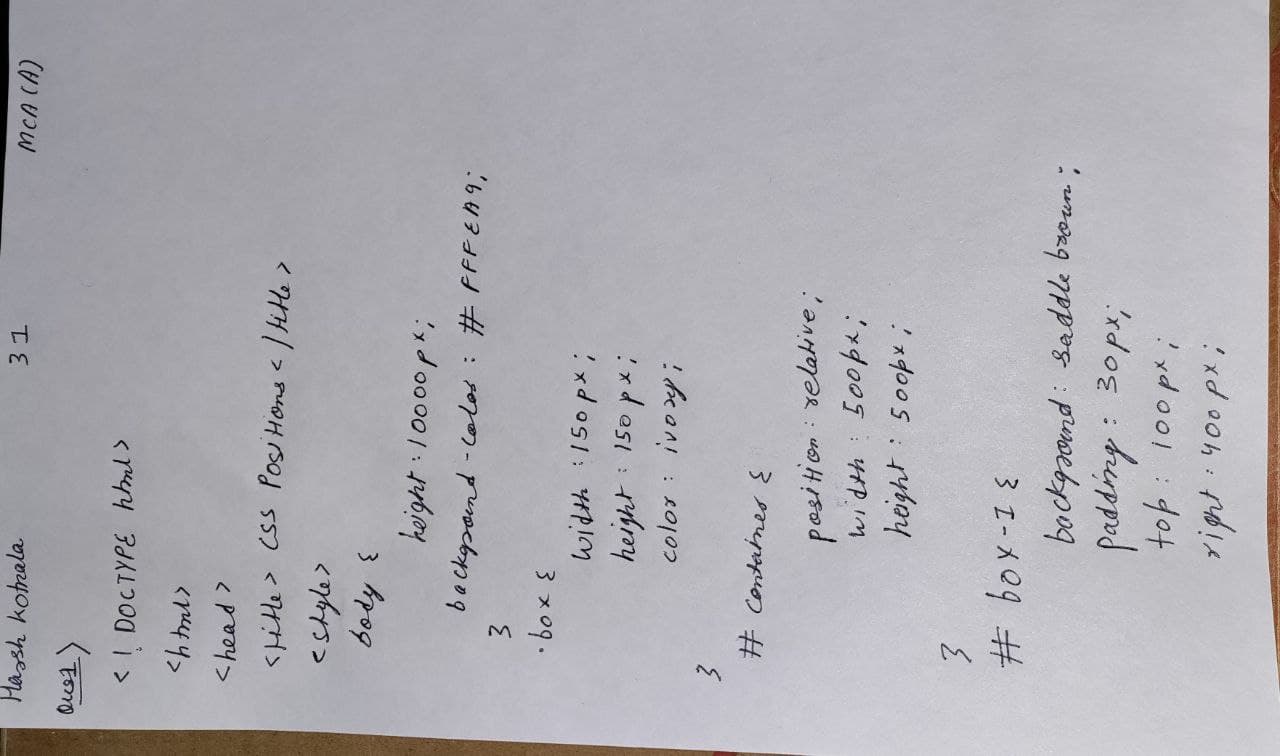 Harsh Kotnala 31 MCA (A)
Ques1>
<! DOCTYPE html>
<html>
<head>
<title> CSS Positions </title>
<style>
body {
height : 10000px;
background-color : # FFFEA9;
}
.box {
width : 150px;
height : 150px;
color : ivory;
}
# container {
position : relative;
width : 500px;
height : 500px;
}
# box-1 {
background : saddle brown;
padding : 30px;
top : 100px;
right : 400px;